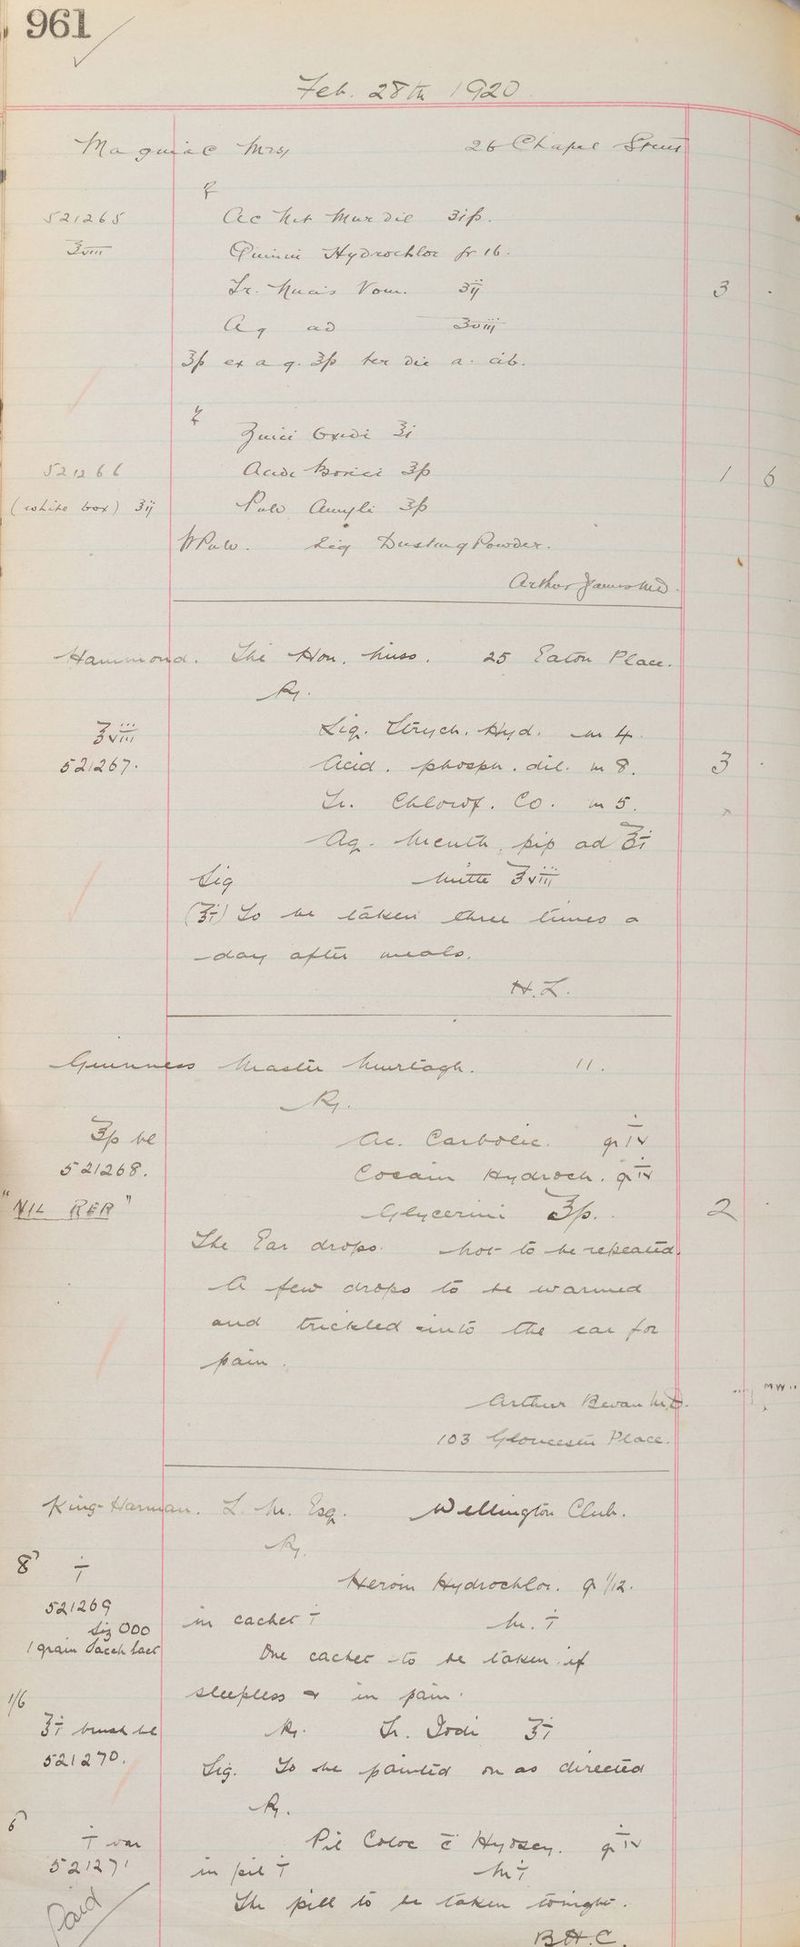 961
Feb. 28th 1920
Maguire Mrs 26 Chapel Street
521265 Ac Nit Mur dil ʒiß.
℥viii Quinin Hydrochlor gr 16.
Tr. Nucis Vom. ʒij 3 .
Aq ad ℥viii
ʒß ex aq. ℥ß ter die a. cib.
Zinci Oxidi ʒi
521266 Acidi Borici ʒß 1 6
(white box) ʒij Pulv Amyli ʒß
Pulv. Sig Dusting Powder.
Arthur James MD.
Hammond. The Hon. Miss. 25 Eaton Place.
Rx.
℥viii Liq. Strych. Hyd. m 4
521267. Acid. phosph. dil. m 8. 3 .
Tr. Chlorof. Co. m 5.
Aq. Menth. pip ad ℥i
Sig Mitte ℥viii
(℥i) To be taken three times a
day after meals.
H.L.
Guinness Master Murtagh. 11.
Rx.
℥ß bl Ac. Carbolic. gr iv
521268. Cocain Hydroch. gr iv
"NIL REP" Glycerini ℥ß. 2
The Ear drops. Not to be repeated.
A few drops to be warmed
and trickled into the ear for
pain.
Arthur Bevan M.D.
103 Gloucester Place.
King-Harman. L. M. Esq. Wellington Club.
Rx.
8 i Heroin Hydrochlor. gr 1/12.
521269
in cachet i M. i
Siz 000
1 grain Sacch Lact One cachet to be taken if
sleepless & in pain.
1/6
℥i brush bl Rx. Tr. Iodi ℥i
521270. Sig. To be painted on as directed
Rx.
6
i Pil Coloc c Hyoscy. gr iv
521271 in pil i M i
Paid The pill to be taken tonight.
B.H.C.